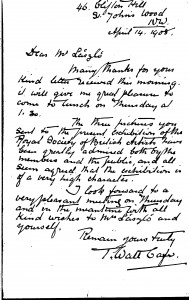 46 Clifton Hill
St. Johns Wood
N.W.
April 14. 1908.
Dear Mr László
Many thanks for your
kind letter received this morning.
it will give me great pleasure to
come to lunch on Thursday at
1.30.
The three pictures you
sent to the present exhibition of the
Royal Society of British Artists have
been greatly admired both by the
members and the public, and all
seem agreed that the exhibition is
of a very high character.
I look forward to a
very pleasant meeting on Thursday
and in the meantime with all
kind wishes to Mrs László and
yourself.
Remain yours truly
T. Watt Cafe.